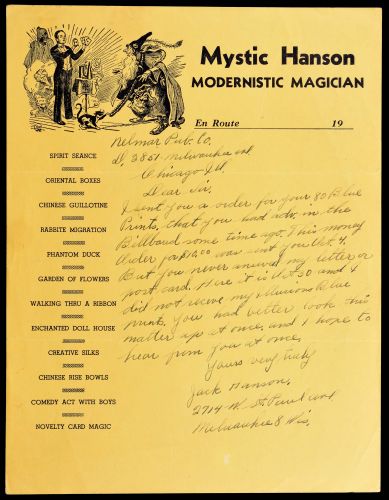 Mystic Hanson
MODERNISTIC MAGICIAN
En Route 19
SPIRIT SEANCE
ORIENTAL BOXES
CHINESE GUILLOTINE
RABBITE MIGRATION
PHANTOM DUCK
GARDEN OF FLOWERS
WALKING THRU A RIBBON
ENCHANTED DOLL HOUSE
CREATIVE SILKS
CHINESE RISE BOWLS
COMEDY ACT WITH BOYS
NOVELTY CARD MAGIC
Nelmar Pub. Co.
2851 Milwaukee ave
Chicago Ill.
Dear Sir,
I sent you a order for your 80 Blue
Prints, that you had adv. in the
Billboad some time ago. This money
Order for $10.00 was sent you Oct. 4.
But you never answed my letter or
post card. Here it is Oct 30 and I
did not receve my illusions Blue
prints. You had better look this
matter up at once, and I hope to
hear from you at once.
Yours very truly
Jack Hanson.
2714 W. St. Paul ave
Milwaukee 8 Wis.